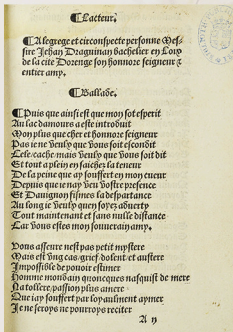 ¶Lacteur.
¶A legrege et circonspecte personne Mes-
sire Jehan Draguinan bachelier en Loix
de la cite Dorenge son honnore seigneur &
entier amy.
¶Ballade.
¶Puis que ainsi est que mon sot esperit
Au lac damours a este introduit
Mon plus que cher et honnore seigneur
Pas ie ne veulx que vous soit escondit
Cele/cache mais veulx que vous soit dit
Et tout a plein en saichez la teneur
De la peine que ay souffert en mon cueur
Depuis que ie nay veu vostre presence
Et Dauignon fismes la despartance
Au long ie veulx quen soyez aduerty
Tout maintenant et sans nulle distance
Car vous estes mon souuerain amy.
Vous asseure nest pas petit mystere
Mais est vng cas grief/dolent et austere
Impossible de pouoir estimer
Homme mondain quoncques nasquist de mere
Na tollere/passion plus amere
Que iay souffert par loyaulment aymer
Je ne scroys ne pourroys reciter
A ij